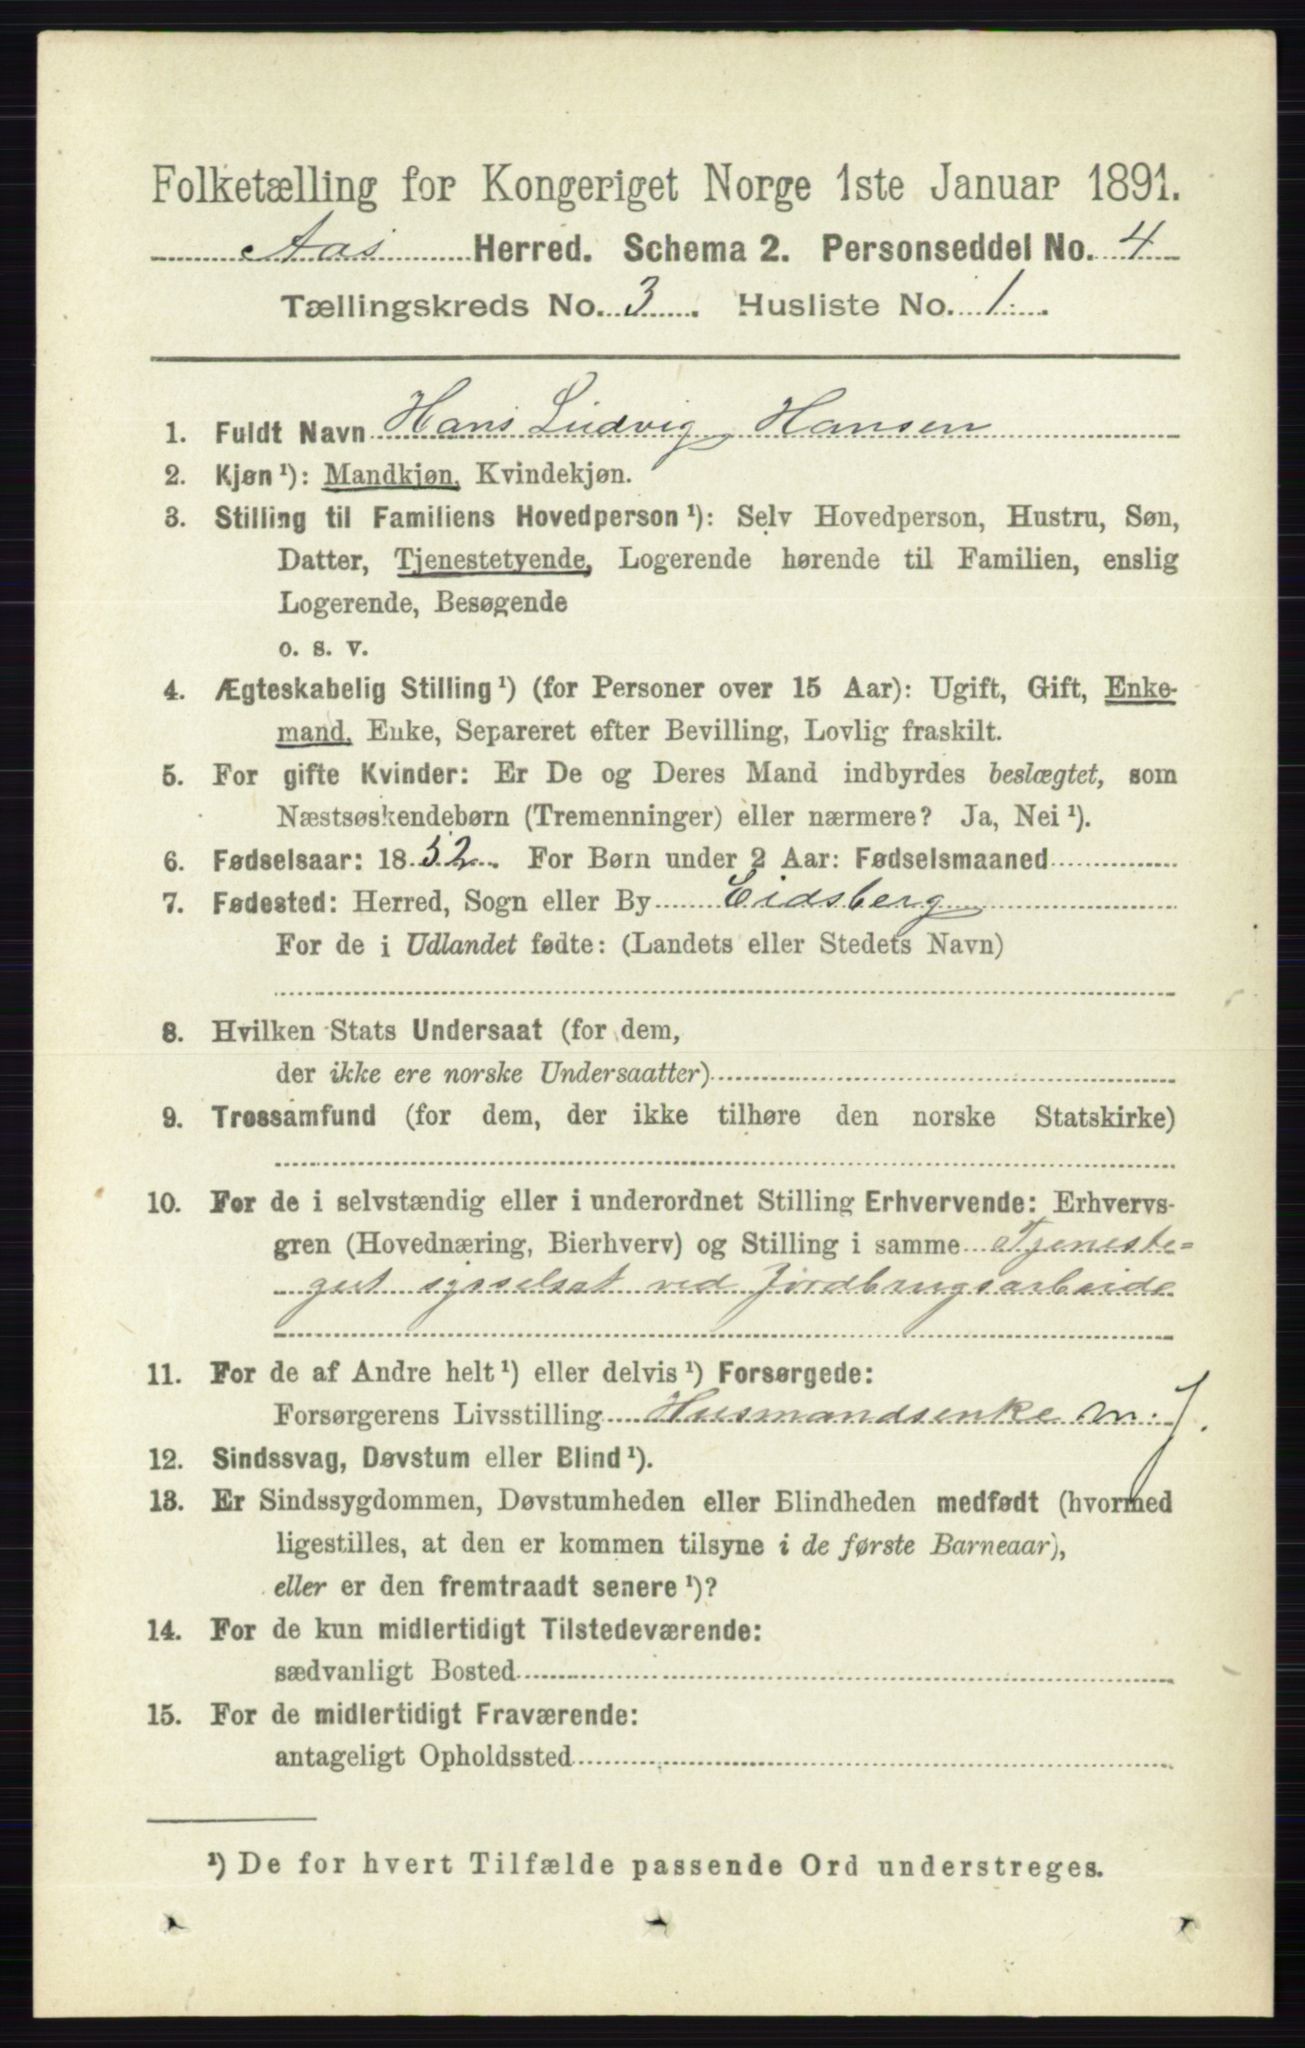 Folketælling for Kongeriget Norge 1ste Januar 1891.
Aas Herred. Schema 2. Personseddel No. 4
Tællingskreds No. 3. Husliste No. 1.
1. Fuldt Navn Hans Ludvig Hansen
2. Kjøn ¹): Mandkjøn, Kvindekjøn.
3. Stilling til Familiens Hovedperson ¹): Selv Hovedperson, Hustru, Søn,
Datter, Tjenestetyende, Logerende hørende til Familien, enslig
Logerende, Besøgende
o. s. v.
4. Ægteskabelig Stilling ¹) (for Personer over 15 Aar): Ugift, Gift, Enke-
mand, Enke, Separeret efter Bevilling, Lovlig fraskilt.
5. For gifte Kvinder: Er De og Deres Mand indbyrdes beslægtet, som
Næstsøskendebørn (Tremenninger) eller nærmere? Ja, Nei ¹).
6. Fødselsaar: 1852. For Børn under 2 Aar: Fødselsmaaned
7. Fødested: Herred, Sogn eller By Eidsberg
For de i Udlandet fødte: (Landets eller Stedets Navn)
8. Hvilken Stats Undersaat (for dem,
der ikke ere norske Undersaatter)
9. Trossamfund (for dem, der ikke tilhøre den norske Statskirke)
10. For de i selvstændig eller i underordnet Stilling Erhvervende: Erhvervs-
gren (Hovednæring, Bierhverv) og Stilling i samme Tjeneste-
gut sysselsat ved Jordbrugsarbeide
11. For de af Andre helt ¹) eller delvis ¹) Forsørgede:
Forsørgerens Livsstilling Husmandsenke m. J.
12. Sindssvag, Døvstum eller Blind ¹).
13. Er Sindssygdommen, Døvstumheden eller Blindheden medfødt (hvormed
ligestilles, at den er kommen tilsyne i de første Barneaar),
eller er den fremtraadt senere ¹)?
14. For de kun midlertidigt Tilstedeværende:
sædvanligt Bosted
15. For de midlertidigt Fraværende:
antageligt Opholdssted
¹) De for hvert Tilfælde passende Ord understreges.